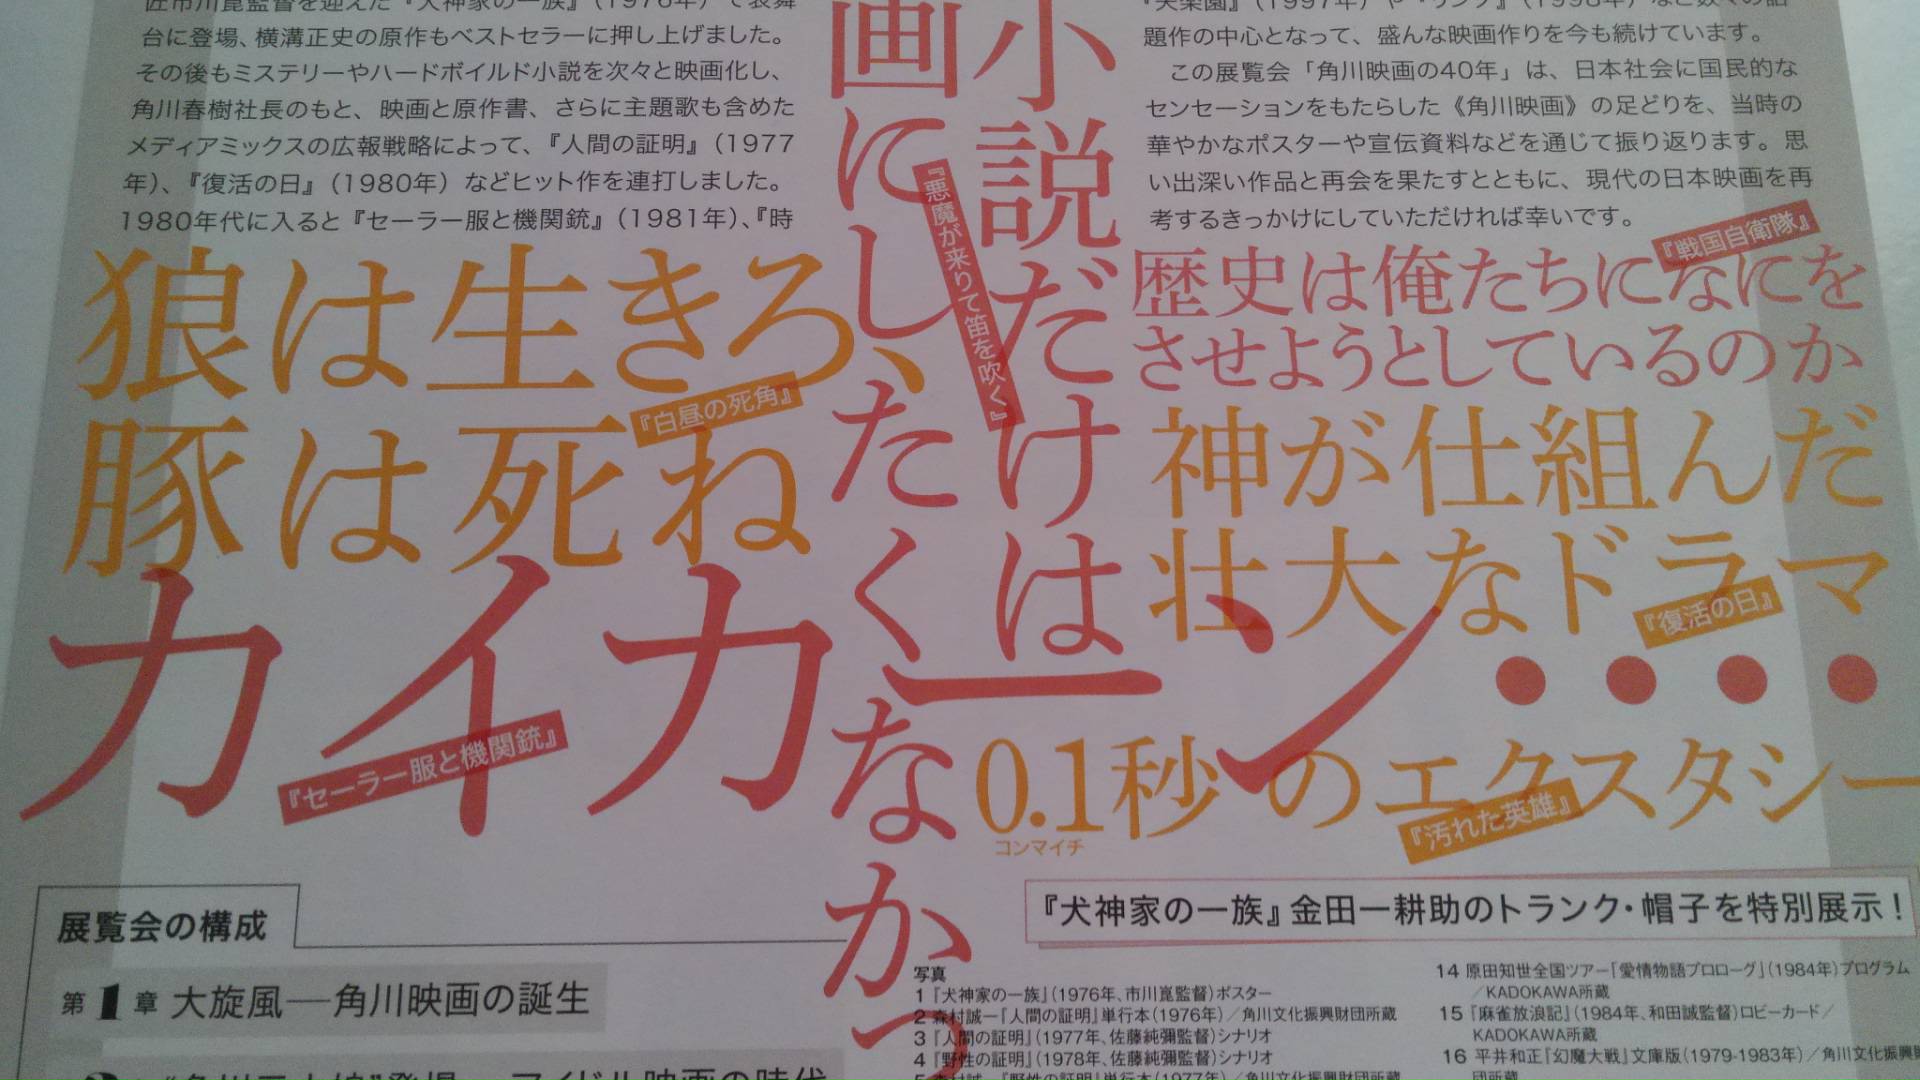 匠市川崑監督を迎えた『犬神家の一族』（1976年）で表舞
台に登場、横溝正史の原作もベストセラーに押し上げました。
その後もミステリーやハードボイルド小説を次々と映画化し、
角川春樹社長のもと、映画と原作書、さらに主題歌も含めた
メディアミックスの広報戦略によって、『人間の証明』（1977
年）、『復活の日』（1980年）などヒット作を連打しました。
1980年代に入ると『セーラー服と機関銃』（1981年）、『時
『失楽園』（1997年）や『リング』（1998年）など数々の話
題作の中心となって、盛んな映画作りを今も続けています。
この展覧会「角川映画の40年」は、日本社会に国民的な
センセーションをもたらした《角川映画》の足どりを、当時の
華やかなポスターや宣伝資料などを通じて振り返ります。思
い出深い作品と再会を果たすとともに、現代の日本映画を再
考するきっかけにしていただければ幸いです。
小説だけは
画にしたくなかっ
『悪魔が来りて笛を吹く』
狼は生きろ、
豚は死ね
『白昼の死角』
歴史は俺たちになにを
させようとしているのか
『戦国自衛隊』
神が仕組んだ
壮大なドラマ
『復活の日』
カイカーン・・・・
『セーラー服と機関銃』
0.1秒のエクスタシー
コンマイチ
『汚れた英雄』
展覧会の構成
第1章 大旋風―角川映画の誕生
『犬神家の一族』金田一耕助のトランク・帽子を特別展示！
写真
1 『犬神家の一族』（1976年、市川崑監督）ポスター
2 森村誠一『人間の証明』単行本（1976年）／角川文化振興財団所蔵
3 『人間の証明』（1977年、佐藤純彌監督）シナリオ
4 『野性の証明』（1978年、佐藤純彌監督）シナリオ
5 森村誠一『野性の証明』単行本（1977年）／角川文化振興財団所蔵
14 原田知世全国ツアー「愛情物語プロローグ」（1984年）プログラム
／KADOKAWA所蔵
15 『麻雀放浪記』（1984年、和田誠監督）ロビーカード／
KADOKAWA所蔵
16 平井和正『幻魔大戦』文庫版（1979-1983年）／角川文化振興
団所蔵